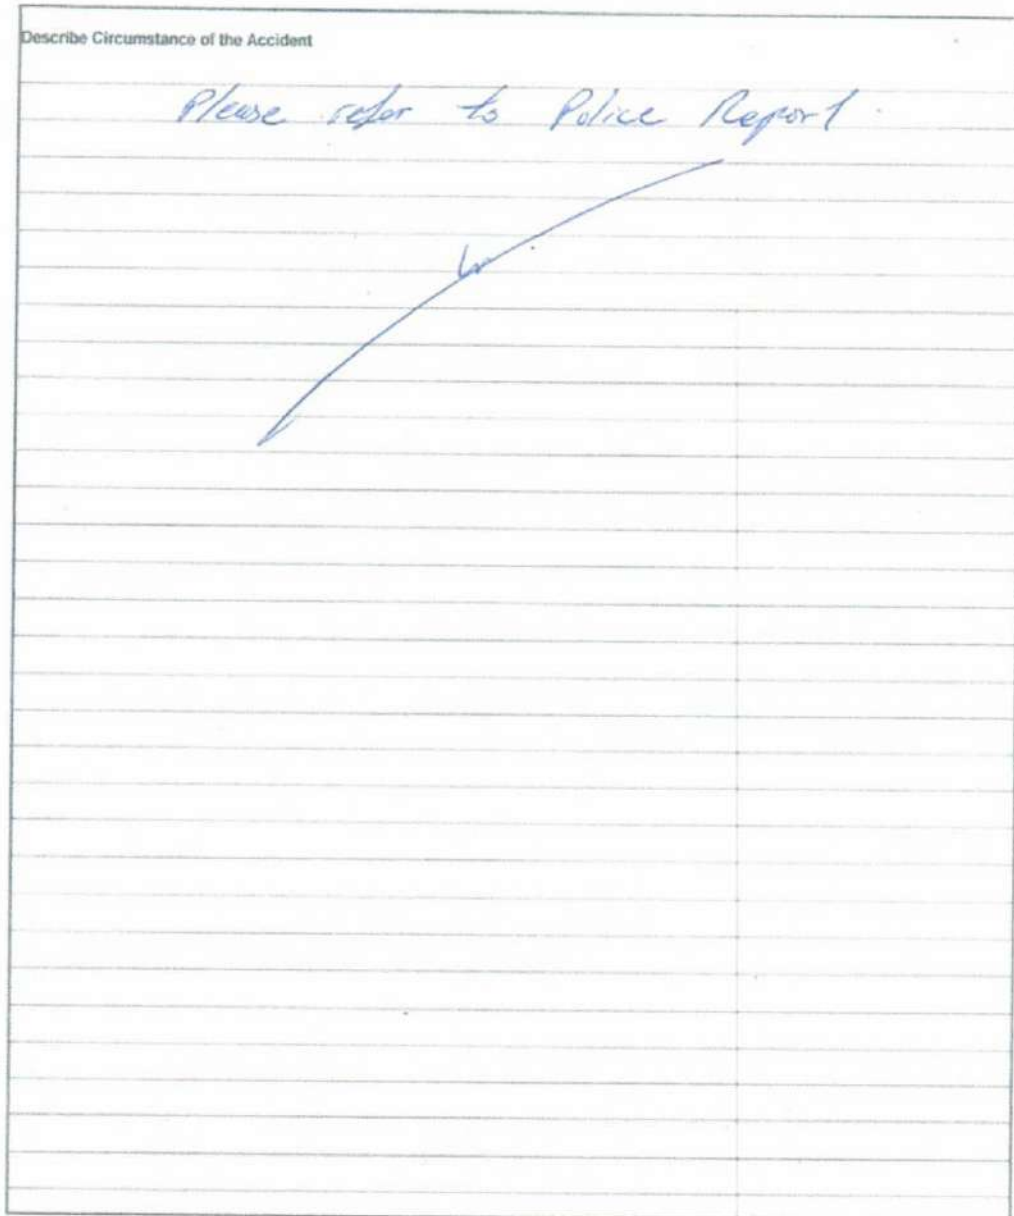 Describe Circumstance of the Accident
Please refer to Police Report.